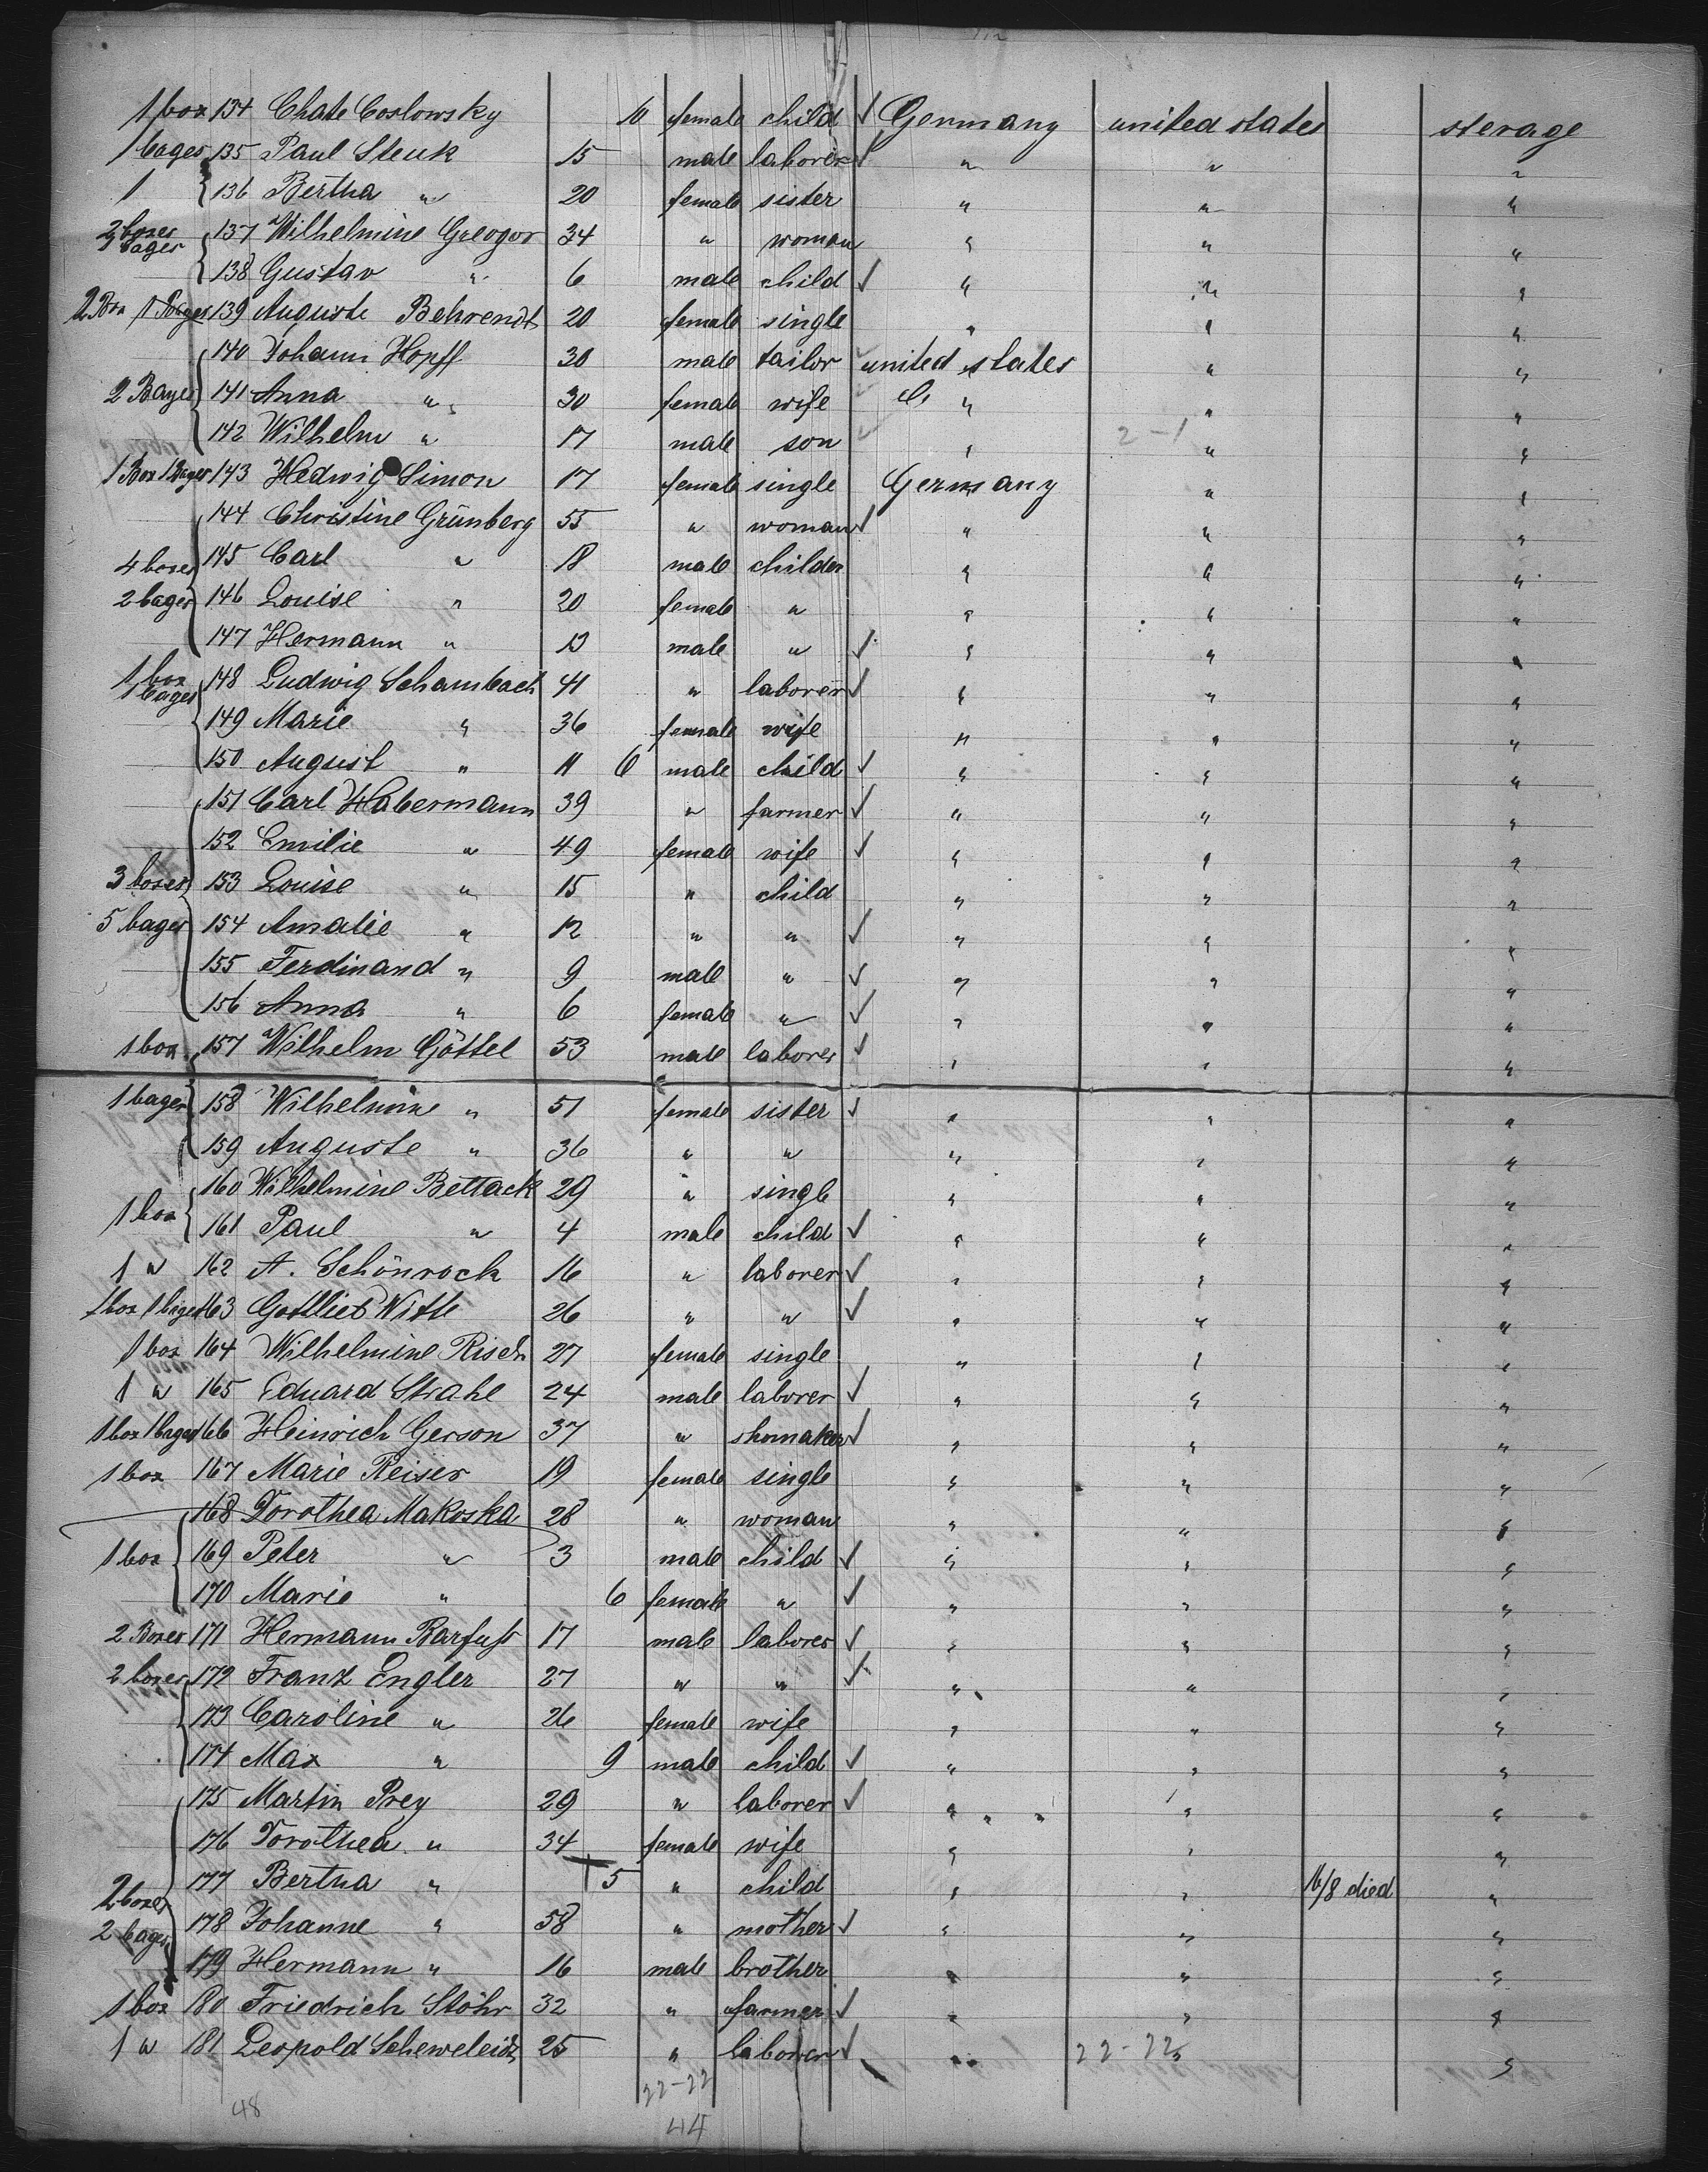 1 box 134 Chate Coslowsky 10 female child ✓ Germany united states sterage
1 bages 135 Paul Steuk 15 male laborer ✓ " " "
1 136 Bertha " 20 female sister " " "
2 boxes 3 bages 137 Wilhelmine Greogor 34 " woman " " "
138 Gustav " 6 male child ✓ " " "
2 Box 1 Bages 139 Auguste Behrendt 20 female single " " "
140 Johann Hopff 30 male tailor ✓ united states " "
2 Bages 141 Anna " 30 female wife ✓ " " "
142 Wilhelm " 17 male son ✓ " 2-1 " "
1 Box 1 Bages 143 Hedwig Simon 17 female single Germany " "
144 Christine Grünberg 55 " woman ✓ " " "
4 boxes 145 Carl " 18 male childer " " "
2 bages 146 Louise " 20 female " " " "
147 Hermann " 13 male " ✓ " " "
1 box 1 bages 148 Ludwig Schambach 41 " laborer ✓ " " "
149 Marie " 36 female wife " " "
150 August " 11 6 male child ✓ " " "
151 Carl Habermann 39 " farmer ✓ " " "
152 Emilie " 49 female wife ✓ " " "
3 boxes 153 Louise " 15 " child " " "
5 bages 154 Amalie " 12 " " ✓ " " "
155 Ferdinand " 9 male " ✓ " " "
156 Anna " 6 female " ✓ " " "
1 box 157 Wilhelm Göttel 53 male laborer ✓ " " "
1 bages 158 Wilhelmine " 51 female sister ✓ " " "
159 Auguste " 36 " " " " "
160 Wilhelmine Bettack 29 " single " " "
1 box 161 Paul " 4 male child ✓ " " "
1 " 162 A. Schönrock 16 " laborer ✓ " " "
1 box 1 bages 163 Gottlieb Witte 26 " " ✓ " " "
1 box 164 Wilhelmine Risch 27 female single " " "
1 " 165 Eduard Strahl 24 male laborer ✓ " " "
1 box 1 bages 166 Heinrich Gerson 37 " shomaker ✓ " " "
1 box 167 Marie Reiser 19 female single " " "
168 Dorothea Makoska 28 " woman " " "
1 box 169 Peter " 3 male child ✓ " " "
170 Marie " 6 female " ✓ " " "
2 Boxes 171 Hermann Barfuß 17 male laborer ✓ " " "
2 boxes 172 Franz Engler 27 " " ✓ " " "
173 Caroline " 26 female wife " " "
174 Max " 9 male child ✓ " " "
175 Martin Prey 29 " laborer ✓ " " "
176 Dorothea " 34 female wife " " "
177 Bertha " 5 " child " " 16/8 died "
2 boxes 178 Johanne " 58 " mother ✓ " " "
2 bages 179 Hermann " 16 male brother " " "
1 box 180 Friedrich Stöhr 32 " farmer ✓ " " "
1 " 181 Leopold 25 " laborer ✓ " 22-22 " "
22-22
48 44